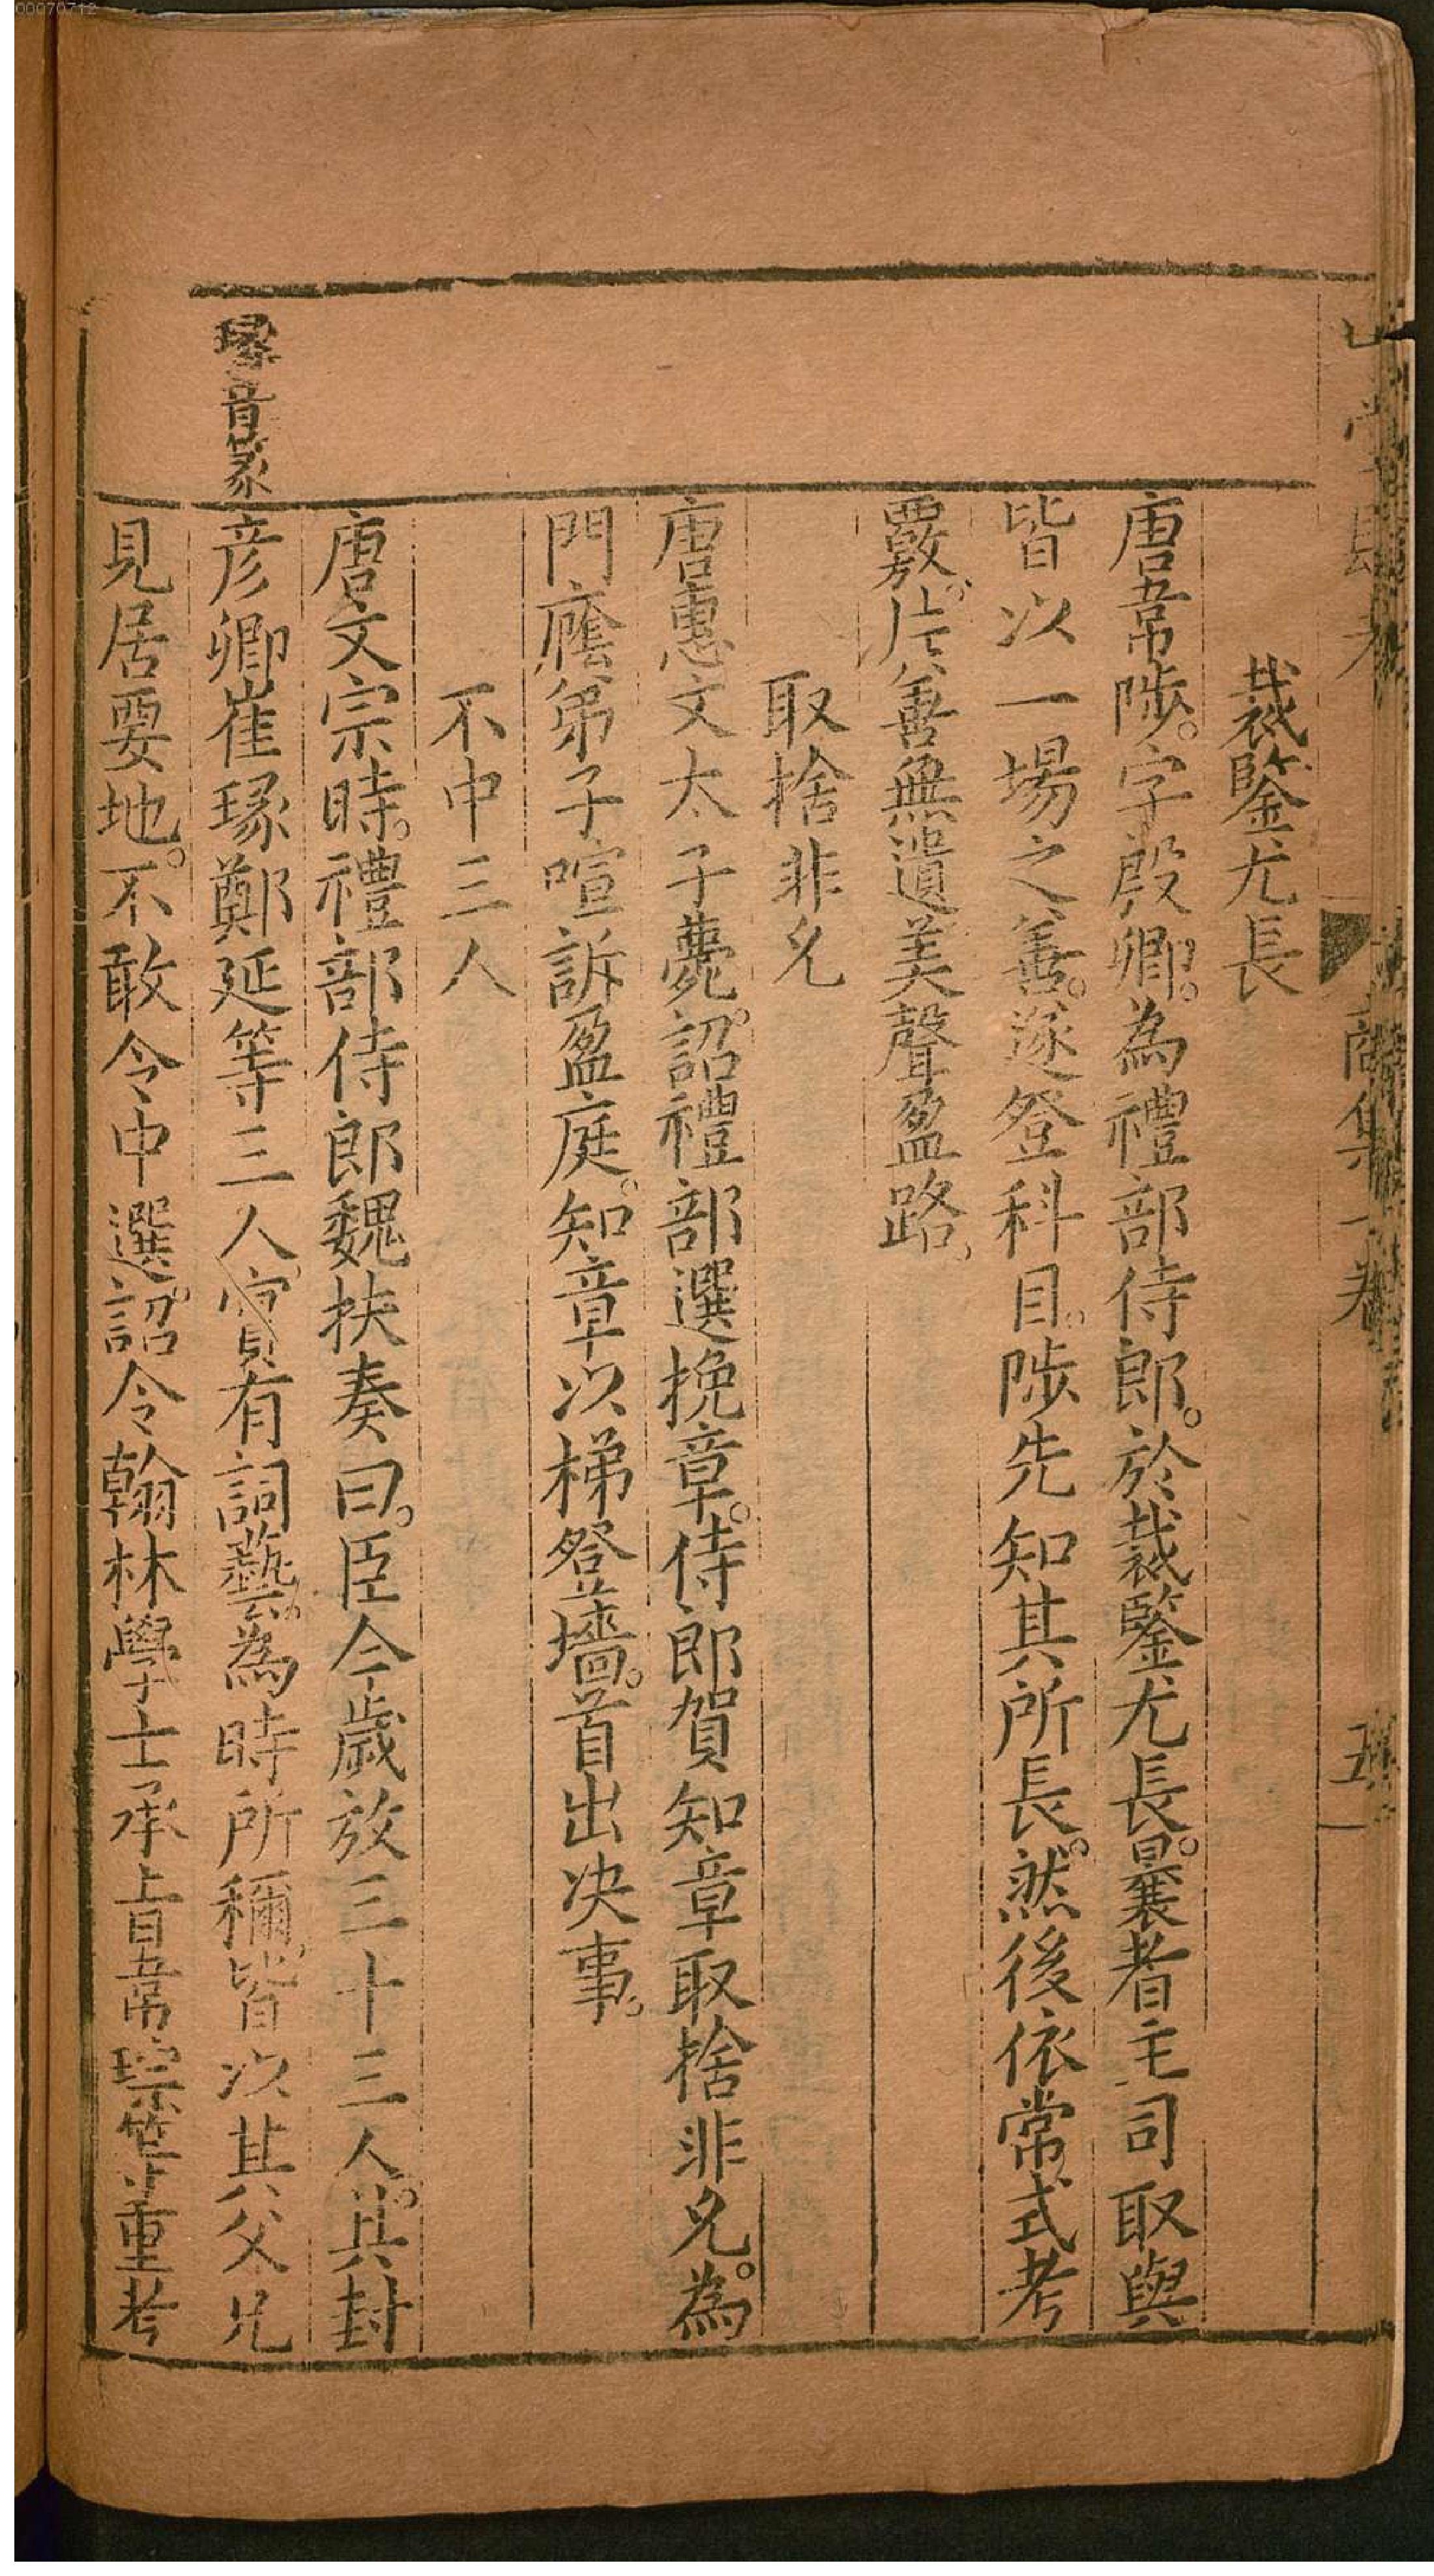 00070712
裁鑒尤長
唐韋陟。字殷卿。為禮部侍郎。於裁鑒尤長。曩者主司取與
皆以一場之善。遂登科目。陟先知其所長。然後依常式考
覈。片善無遺美聲盈路。
取捨非允
唐惠文太子薨。詔禮部選挽章。侍郎賀知章取捨非允。為
門廕弟子喧訴盈庭。知章以梯登墻。首出決事。
不中三人
唐文宗時。禮部侍郎魏扶奏曰。臣今歲放三十三人。其封
彦卿崔瑑鄭延等三人。實有詞藝。為時所稱。皆以其父兄
瑑音篆
見居要地。不敢令中選。詔令翰林學士承旨韋琮等重考
商集一卷
五